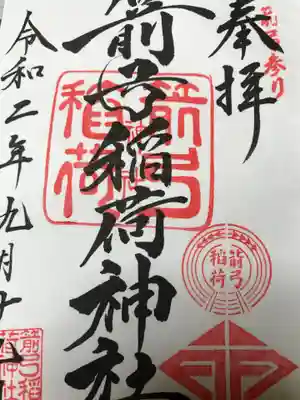 奉拝
箭弓参り
箭弓稲荷神社
箭弓稲荷
箭弓
稲荷
令和二年九月十
箭弓稲
荷神社